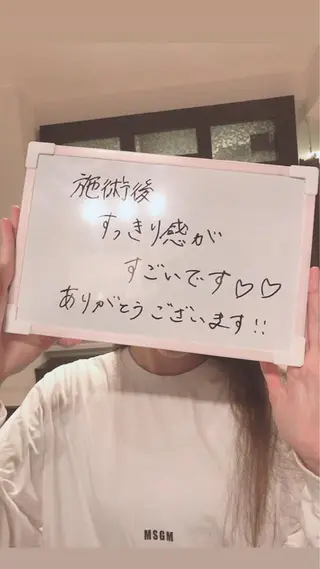 施術後
すっきり感が
すごいです♡♡
ありがとうございます!!
MSGM